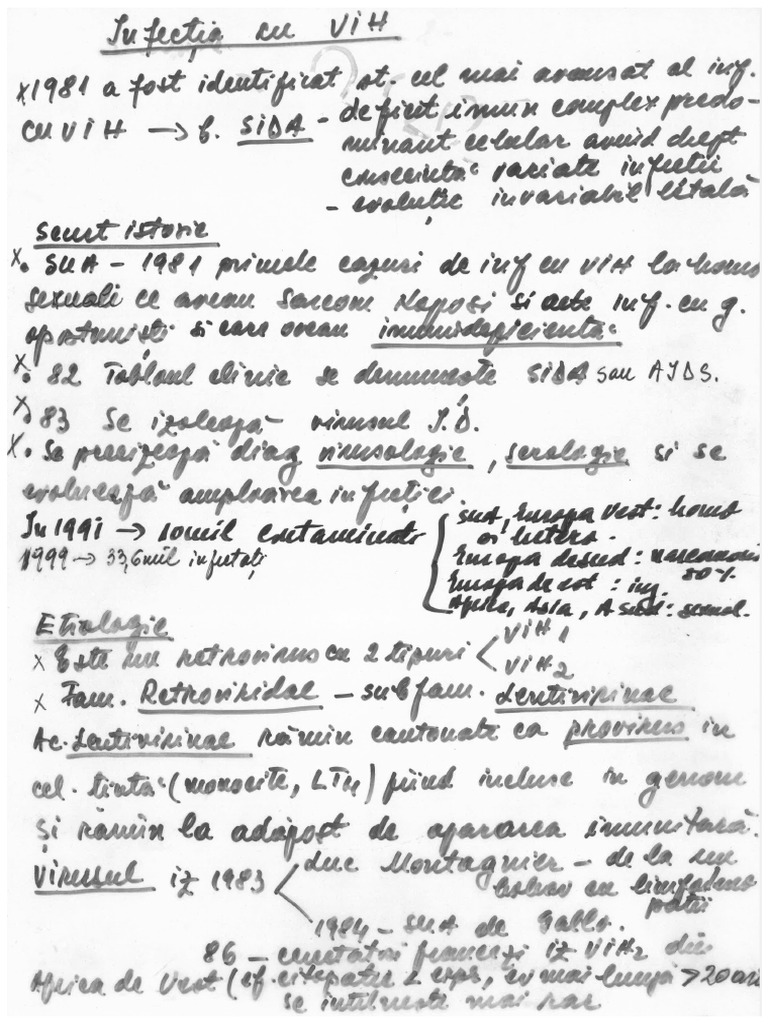 Infecția cu VIH
x 1981 a fost identificat st. cel mai avansat al inf.
cu VIH → b. SIDA - deficit imun complex predo-
minant celular avînd drept
consecință variate infecții
- evoluție invariabil letală
Scurt istoric
x. SUA - 1981 primele cazuri de inf cu VIH la homo
sexuali ce aveau Sarcom Kaposi si alte inf. cu g.
oportuniști si care aveau imunideficiență
x. 82 Tabloul clinic se denumește SIDA sau AIDS.
x. 83 Se izolează virusul I.D.
x. Se precizează diag virusologic, serologic si se
evoluează amploarea infecției.
In 1991 → 10mil contaminati
SUA, Europa Vest: homo
si hetero.
Europa de sud: narcomani
80%
Europa de est: inj.
Africa, Asia, A sud: sexual.
1999 → 33,6mil infectați
Etiologie
x Este un retrovirus cu 2 tipuri < VIH 1
VIH 2
x Fam. Retroviridae - subfam. Lentivirinae
Ac. Lentivirinae rămîn cantonate ca provirus in
cel. țintă (monocite, LT4) fiind incluse in genom
și rămîn la adăpost de apararea imunitară.
Virusul iz 1983 < Luc Montagnier - de la un
bolnav cu limfadeno
patii
1984 - SUA de Gallo.
86 - cercetatori francezi iz VIH2 din
Africa de Vest (ef. citopatic ev mai lungă >20 ani
se intîlnește mai rar